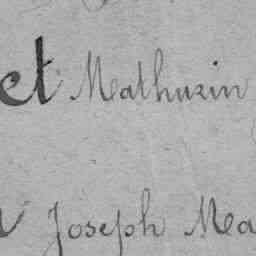 et Mathurin
Joseph Ma